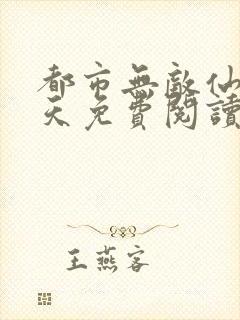 都市無敵仙
天免費閱讀
王燕客